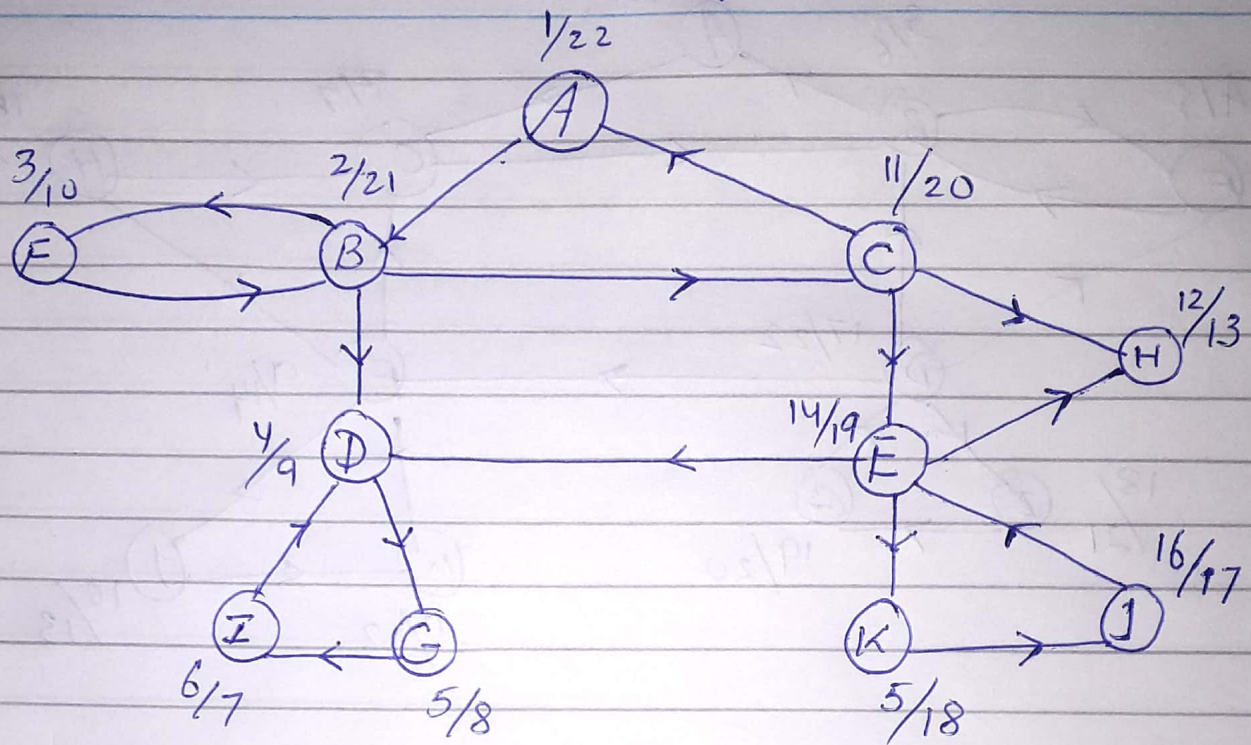 1/22
A
3/10
2/21
11/20
F
B
C
12/13
H
4/9
D
14/19
E
16/17
I
G
K
J
6/7
5/8
5/18